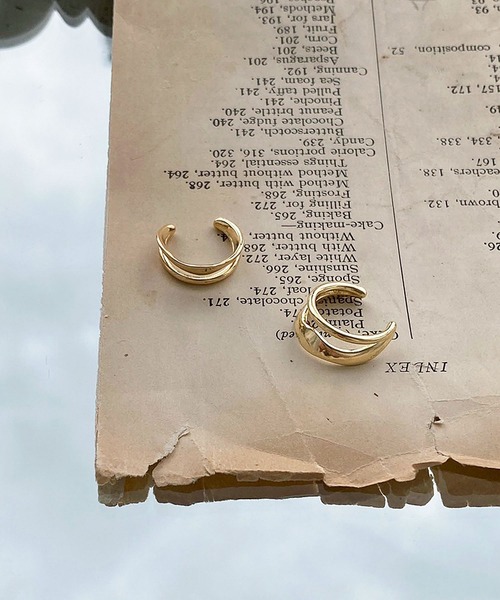 INDEX
brown, 132.
eachers, 138.
167.
334, 338.
157, 172.
composition, 52,
Cake,
Plain
Potato 74.
loaf, 274.
chocolate, 271.
Sponge, 265.
Sunshine, 266.
White layer, 272.
With butter, 268
Without butter,
Cake-making—
Baking, 265.
Filling for, 272.
Frosting, 268.
Method with butter, 268.
Method without butter, 264.
Things essential, 264.
Calorie portions, 316, 320.
Candy, 239.
Butterscotch, 241.
Chocolate fudge, 240.
Peanut brittle, 240.
Pinoche, 241.
Pulled taffy, 241.
Sea foam, 241.
Canning, 192.
Asparagus, 201.
Beets, 201.
Corn, 201.
Fruit, 189.
Jars for, 193.
Methods, 194.